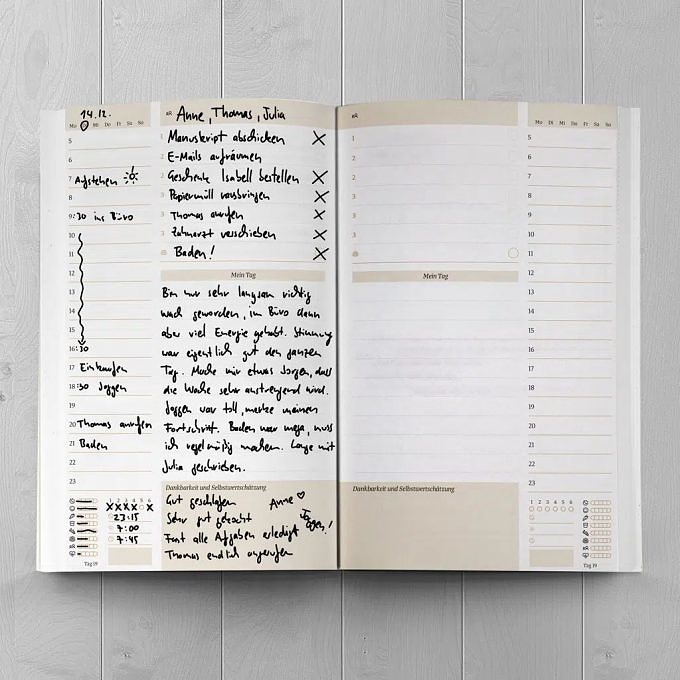 14.12.
Mo Di Mi Do Fr Sa So
5
6
7 Aufstehen
8
9:30 ins Büro
10
11
12
13
14
15
16:30
17 Einkaufen
18:30 Joggen
19
20 Thomas anrufen
21 Baden
22
23
Anne, Thomas, Julia
1 Manuskript abschicken X
2 E-Mails aufräumen
2 Geschenke Isabell bestellen X
3 Papiermüll rausbringen X
3 Thomas anrufen X
3 Zahnarzt verschieben X
Baden! X
Mein Tag
Bin nur sehr langsam richtig
wach geworden, im Büro dann
aber viel Energie gehabt. Stimmung
war eigentlich gut den ganzen
Tag. Mache mir etwas Sorgen, dass
die Woche sehr anstrengend wird.
Joggen war toll, merke meinen
Fortschritt. Baden war mega, muss
ich regelmäßig machen. Lange mit
Julia geschrieben.
Dankbarkeit und Selbstwertschätzung
Gut geschlafen Anne ♡
Sehr gut gekocht Joggen!
Fast alle Aufgaben erledigt
Thomas endlich angerufen
1 2 3 4 5 6
X X X X X
23:15
7:00
7:45
Tag 19
1
2
2
3
3
3
Mein Tag
Dankbarkeit und Selbstwertschätzung
Mo Di Mi Do Fr Sa So
5
6
7
8
9
10
11
12
13
14
15
16
17
18
19
20
21
22
23
1 2 3 4 5 6
Tag 19